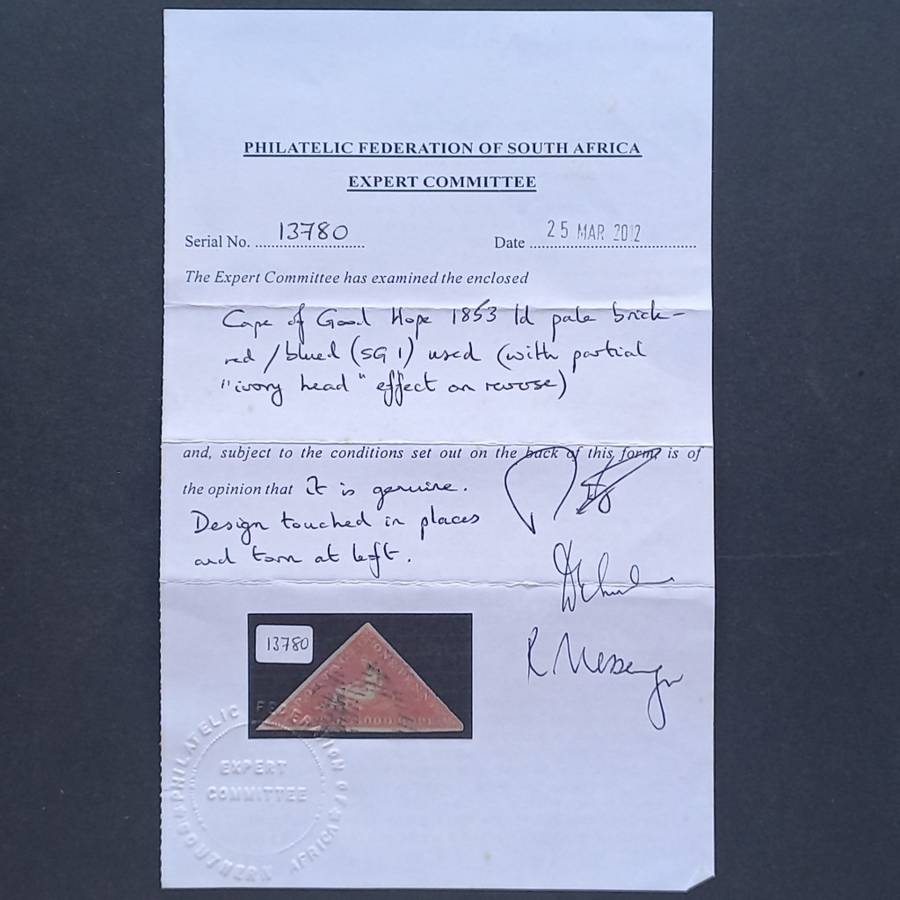 PHILATELIC FEDERATION OF SOUTH AFRICA
EXPERT COMMITTEE
Serial No. 13780 Date 25 MAR 2012
The Expert Committee has examined the enclosed
Cape of Good Hope 1853 1d pale brick-
red / blued (SG 1) used (with partial
"ivory head" effect on reverse)
and, subject to the conditions set out on the back of this form, is of
the opinion that It is genuine.
Design touched in places
and torn at left.
R Messenger
13780
PHILATELIC FEDERATION OF SOUTHERN AFRICA
EXPERT
COMMITTEE